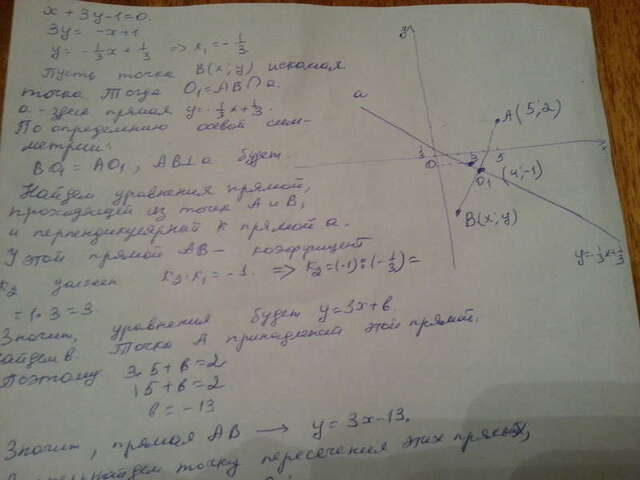 x + 3y - 1 = 0.
3y = -x+1
y = -1/3x + 1/3 => k₁ = -1/3.
Пусть точка B(x; y) искомая
точка. Тогда O₁ = AB ∩ a.
a - здесь прямая y = -1/3x + 1/3.
По определению осевой сим-
метрии:
BO₁ = AO₁, AB ⊥ a будет.
Найдем уравнения прямой,
проходящей из точек A и B,
и перпендикулярный к прямой a.
У этой прямой AB - коэффицент
k₂ должен k₂·k₁ = -1. => k₂ = (-1) : (-1/3) =
= 1·3 = 3.
Значит, уравнения будет y = 3x + b.
Найдем b. Точка A принадлежит этой прямой.
Поэтому 3·5 + b = 2
15 + b = 2
b = -13
Значит, прямая AB → y = 3x - 13.
найдем точку пересечения этих прямых,
y
a
A (5; 2)
1/3
0
3
5
x
O₁ (4; -1)
B(x; y)
y = -1/3x + 1/3